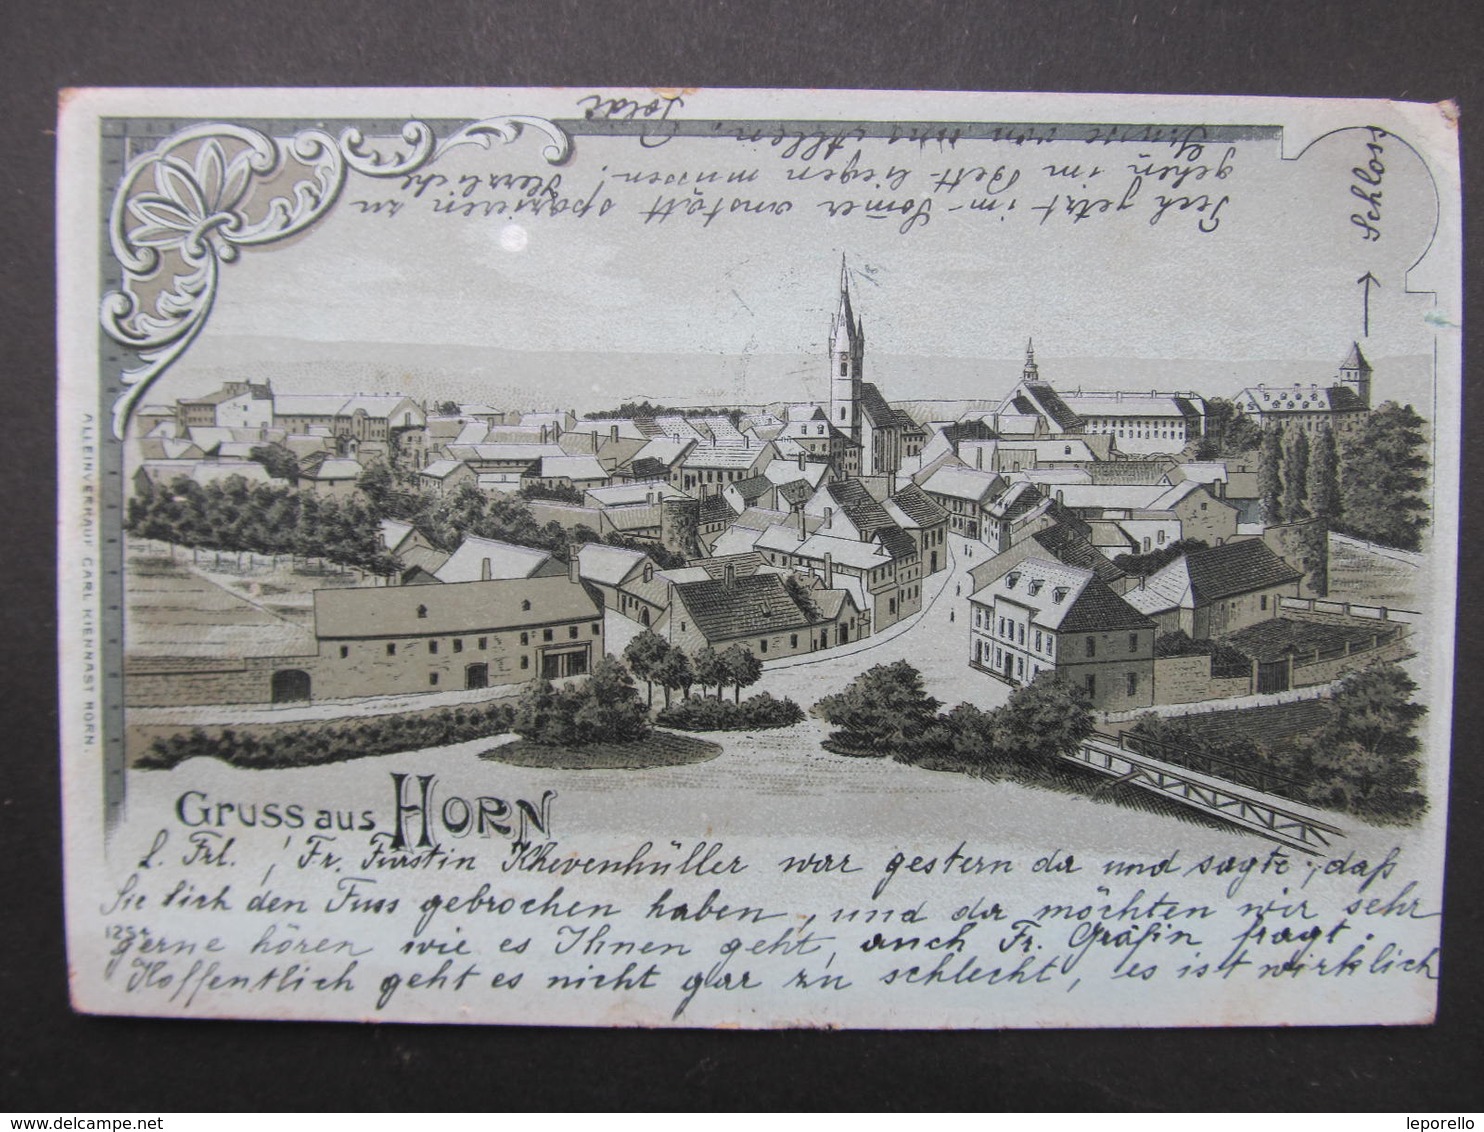 Gruss aus HORN
L. Frl. ! Fr. Fürstin Khevenhüller war gestern da und sagte, daß
Sie sich den Fuss gebrochen haben, und da möchten wir sehr
gerne hören wie es Ihnen geht, auch Fr. Gräfin fragt.
Hoffentlich geht es nicht gar zu schlecht, es ist wirklich
Pech jetzt im Somer anstatt spazieren zu
gehen im Bett liegen müssen! Herzliche
Grüsse von uns Allen.
Schloss
ALLEINVERKAUF CARL KIENNAST HORN.
delcampe.net
leporello